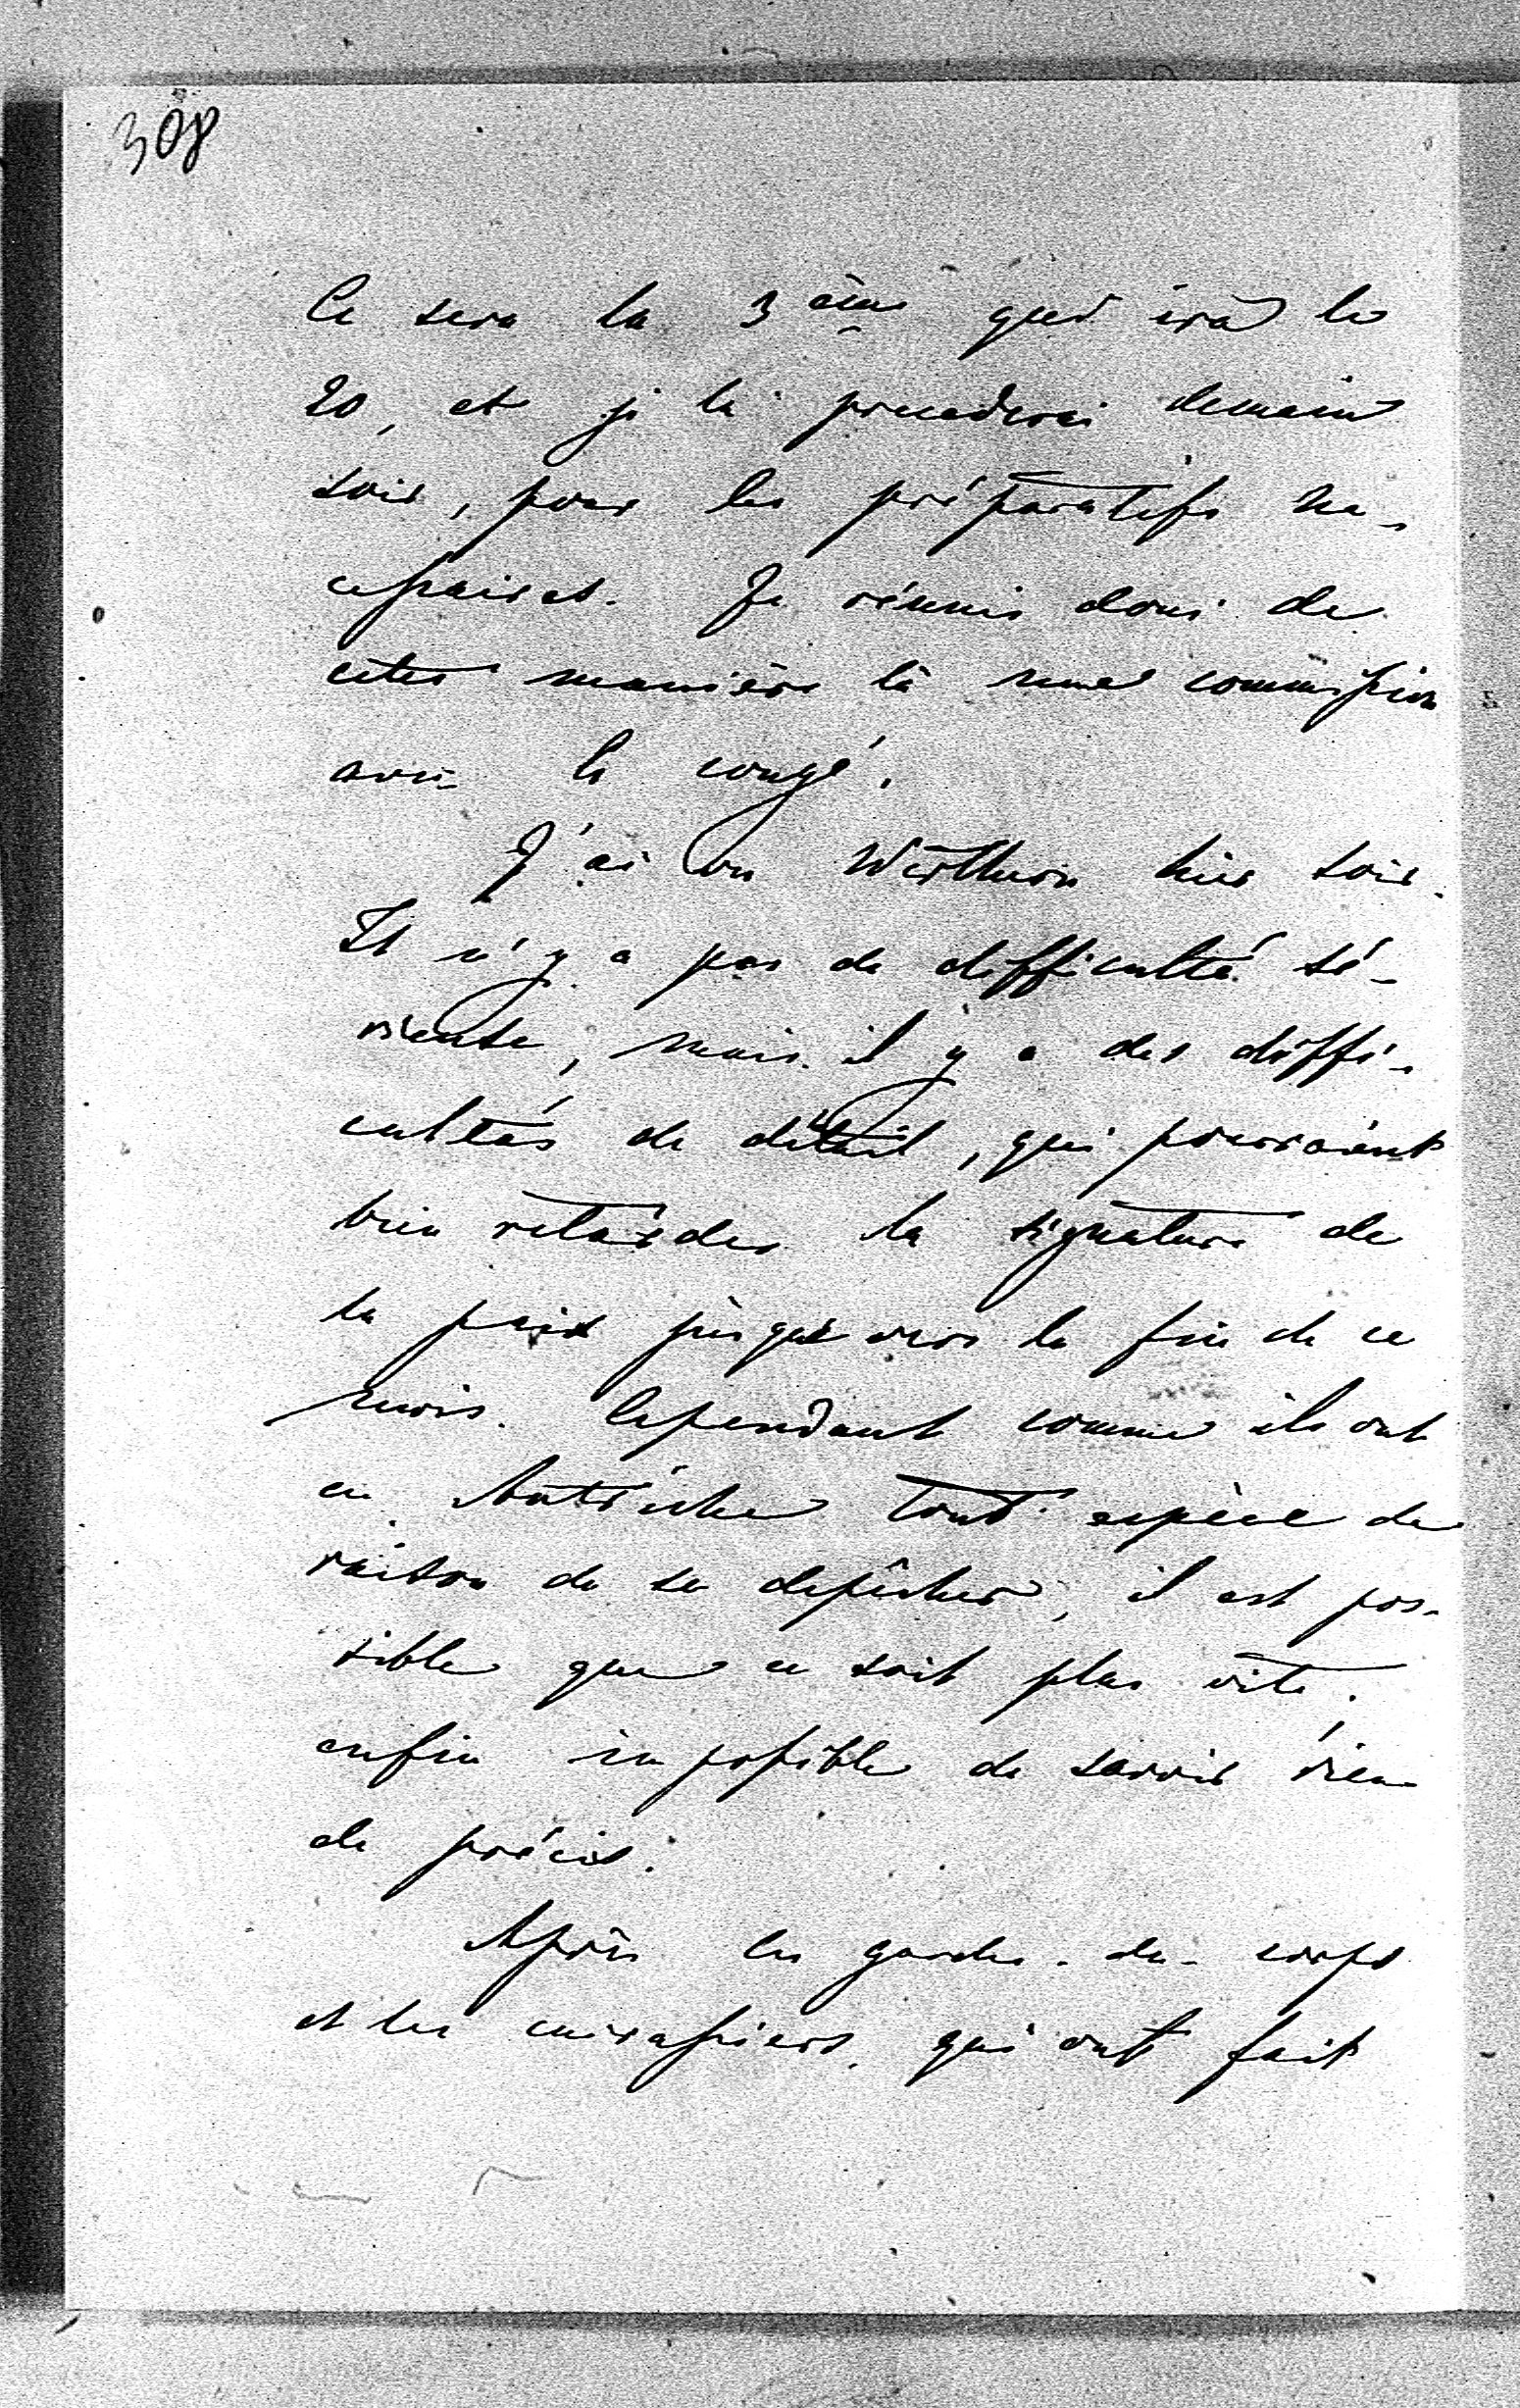 308
Ce sera la 3ème qui ira le
20, et je la precederai demain
soir, pour les préparatifs né-
cessaires. Je réunis donc de
cette manière là une commission
avec le congé.
J'ai vu Werthern hier soir.
Il n'y a pas de difficulté sé-
rieuse, mais il y a des diffi-
cultés de détail, qui pourraient
bien retarder la signature de
la paix jusque vers la fin de ce
mois. Cependant comme ils ont
en Autriche tout espèce de
raison de se depêcher, il est pos-
sible que ce soit plus vite.
enfin impossible de savoir rien
de précis.
Après les gardes-du-corps
et les cuirassiers, qui ont fait